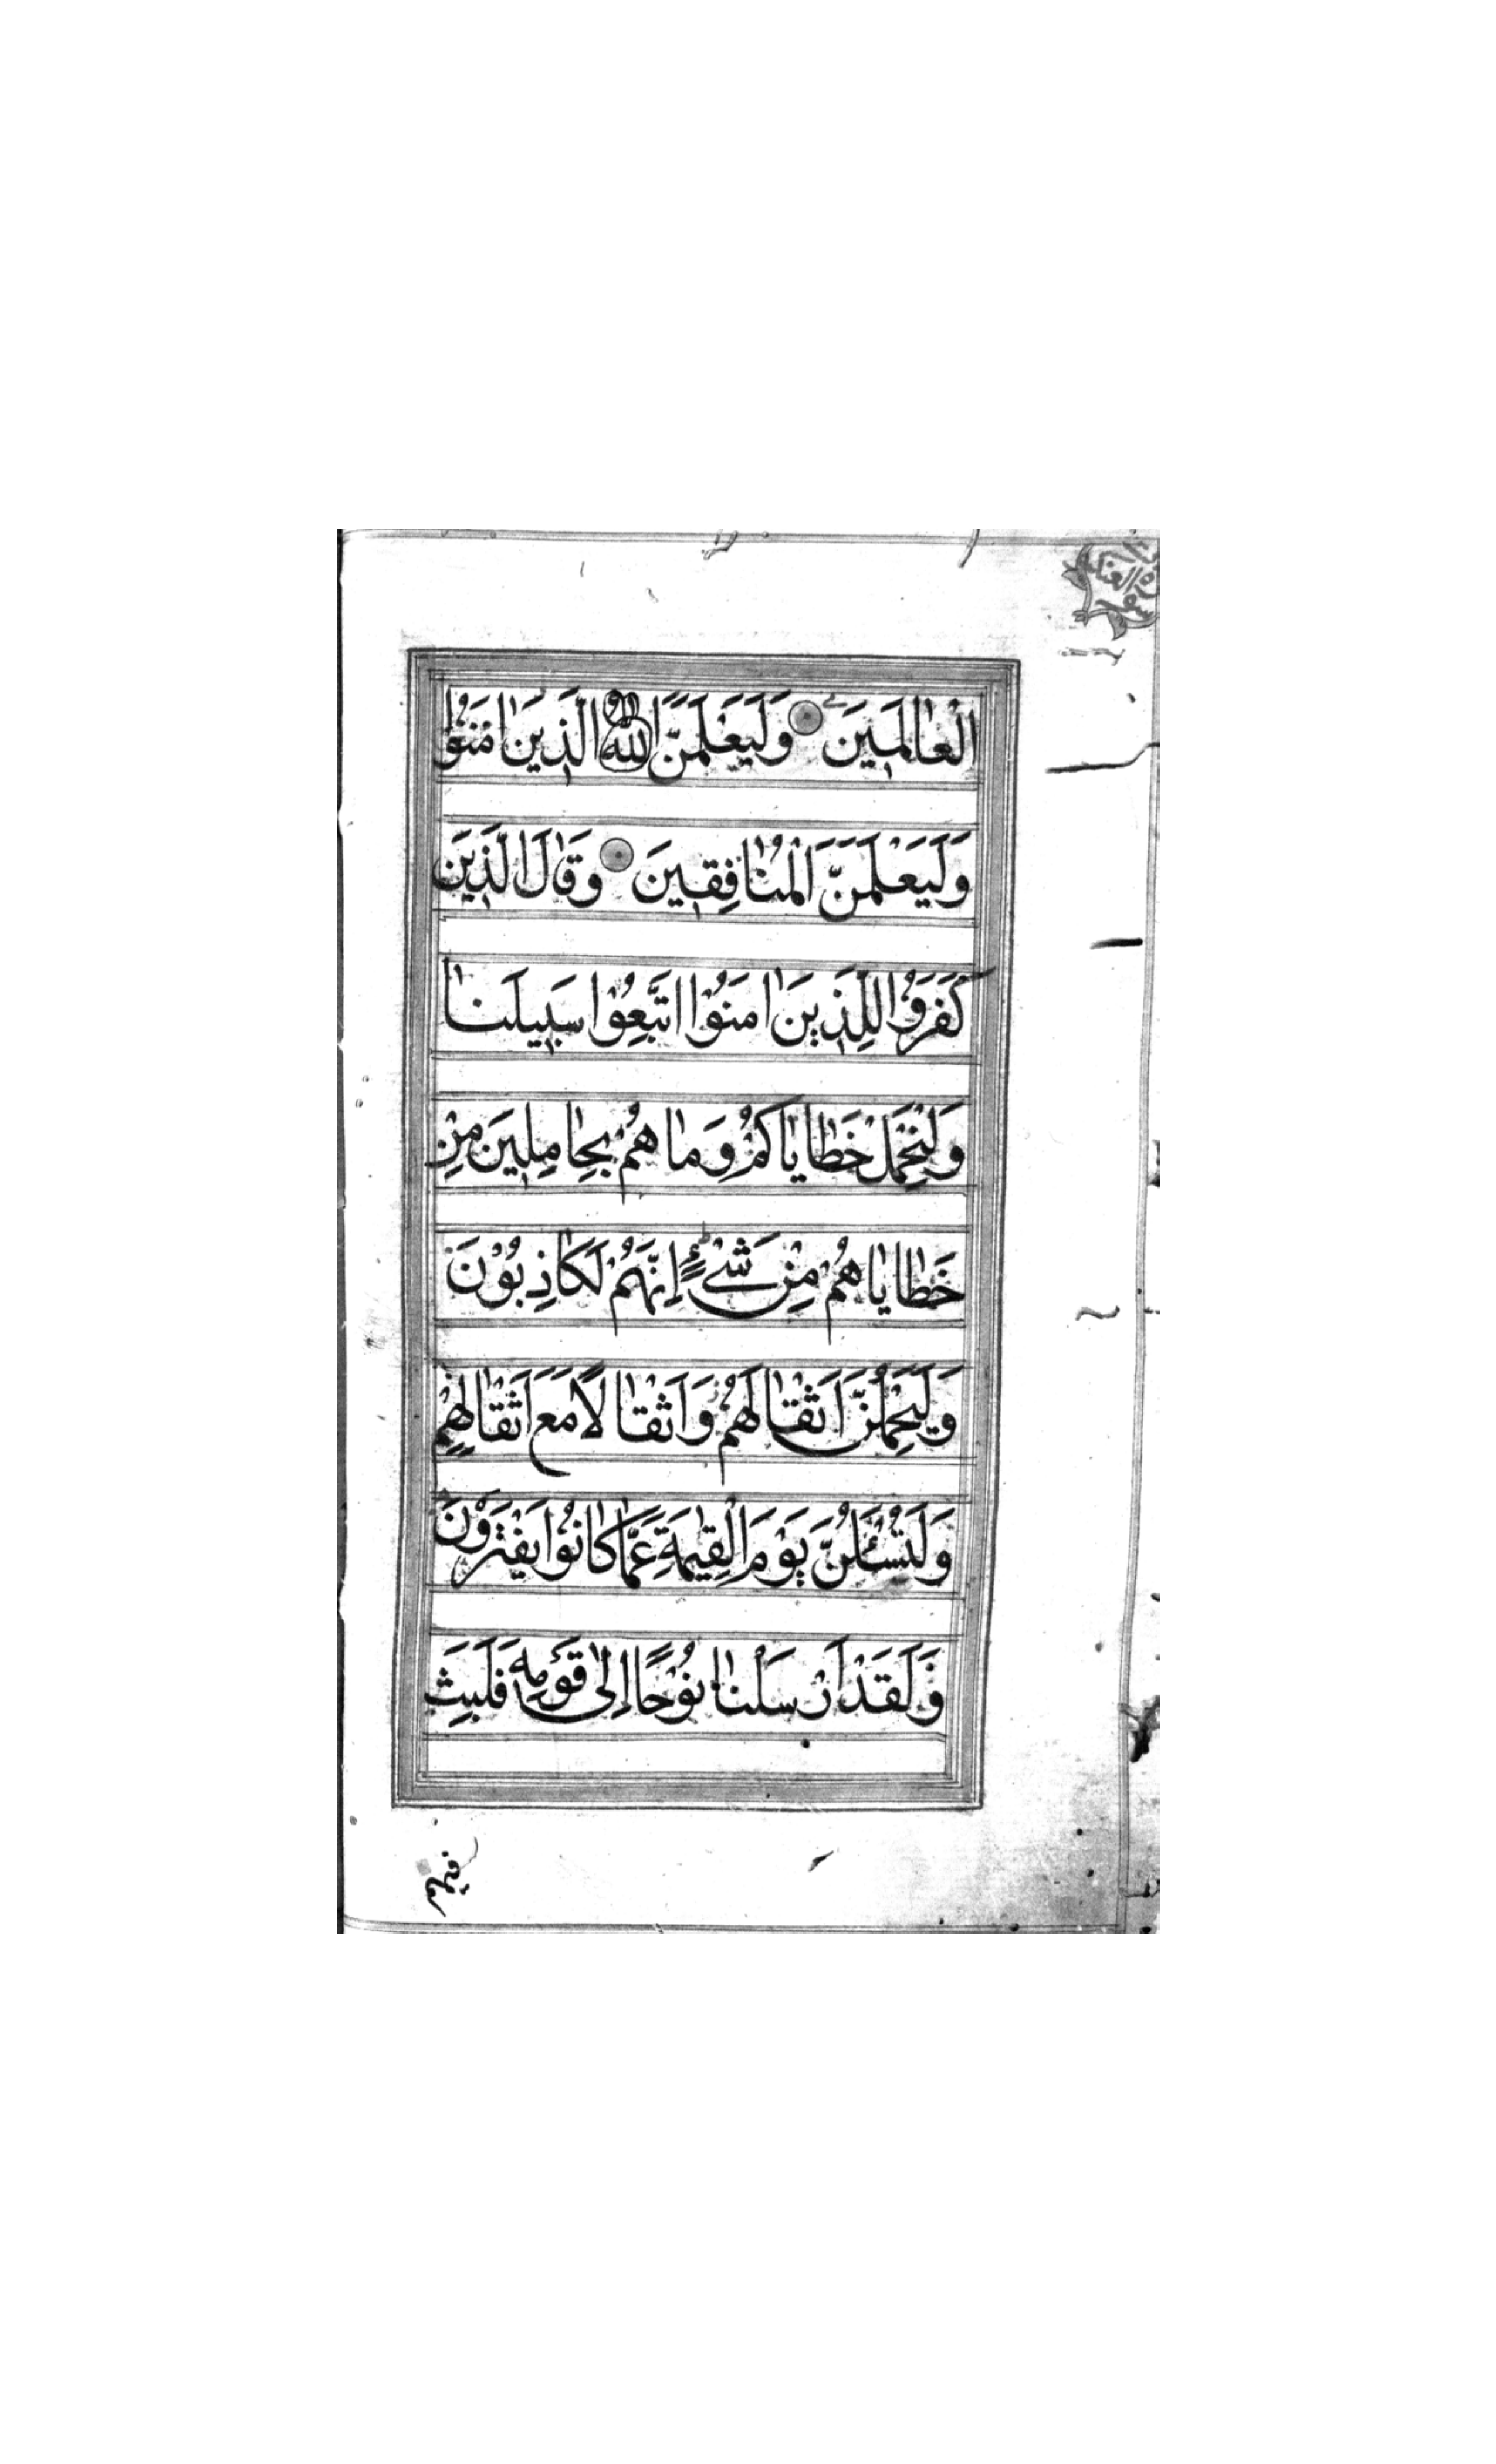 الْعٰالَمٖينَ وَلَيَعْلَمَنَّ اللّٰهُ الَّذٖينَ اٰمَنُوْا
وَلَيَعْلَمَنَّ الْمُنٰافِقٖينَ وَقٰالَ الَّذٖينَ
كَفَرُوْا لِلَّذٖينَ اٰمَنُوْا اتَّبِعُوْا سَبٖيلَنٰا
وَلْنَحْمِلْ خَطٰايٰاكُمْ وَمٰا هُمْ بِحٰامِلٖينَ مِنْ
خَطٰايٰاهُمْ مِنْ شَيْءٍ اِنَّهُمْ لَكٰاذِبُوْنَ
وَلَيَحْمِلُنَّ اَثْقٰالَهُمْ وَاَثْقٰالًا مَعَ اَثْقٰالِهِمْ
وَلَتُسْئَلُنَّ يَوْمَ الْقِيٰمَةِ عَمّٰا كٰانُوْا يَفْتَرُوْنَ
وَلَقَدْ اَرْسَلْنٰا نُوْحًا اِلٰى قَوْمِهٖ فَلَبِثَ
فيهم